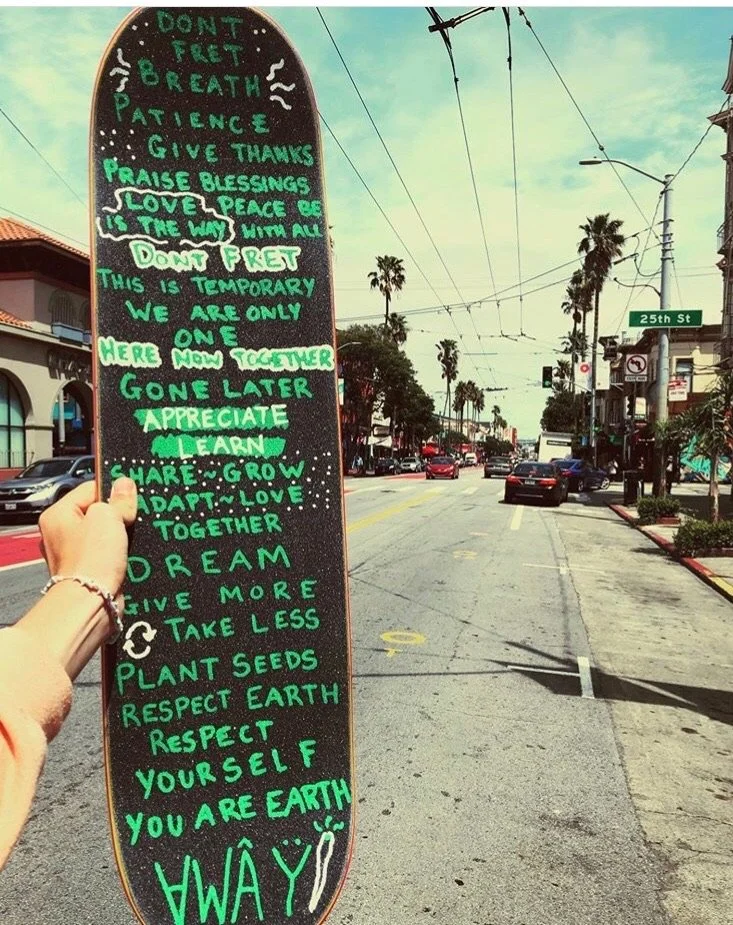 DONT
FRET
BREATH
PATIENCE
GIVE THANKS
PRAISE BLESSINGS
LOVE PEACE BE
IS THE WAY WITH ALL
DONT FRET
THIS IS TEMPORARY
WE ARE ONLY
ONE
HERE NOW TOGETHER
GONE LATER
APPRECIATE
LEARN
SHARE~GROW
ADAPT~LOVE
TOGETHER
DREAM
GIVE MORE
TAKE LESS
PLANT SEEDS
RESPECT EARTH
RESPECT
YOURSELF
YOU ARE EARTH
ⱯWÂŸ
25th St